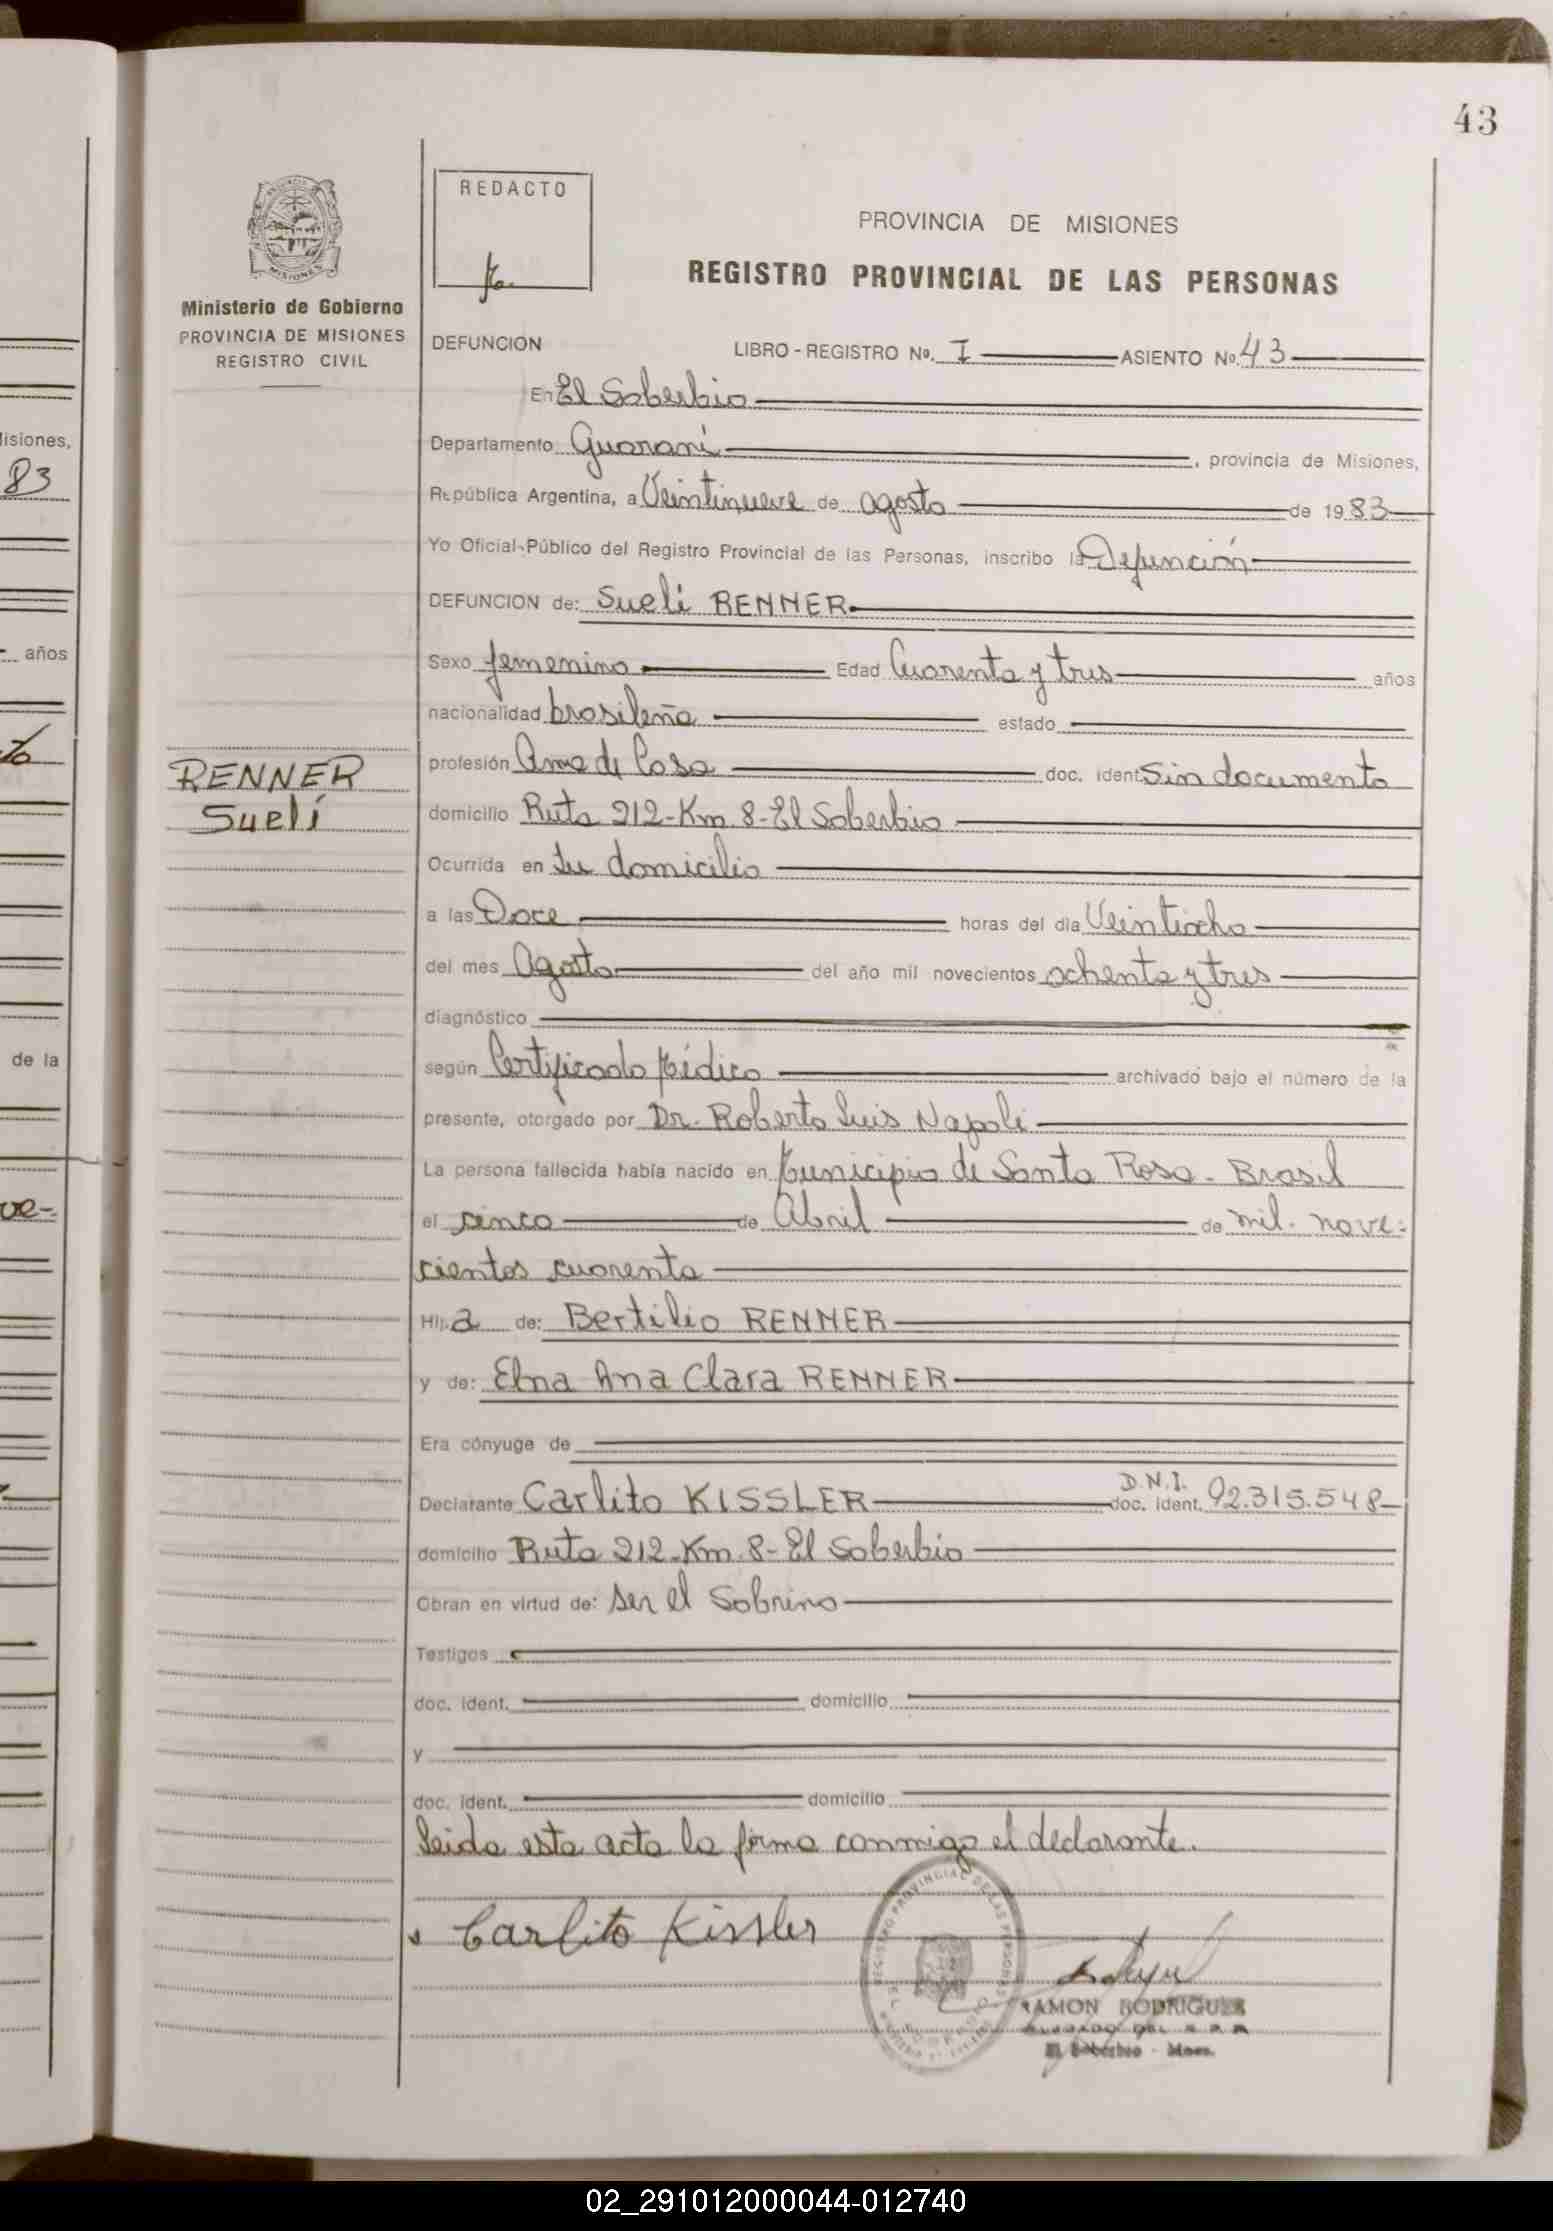 43
REDACTO
PROVINCIA DE MISIONES
REGISTRO PROVINCIAL DE LAS PERSONAS
MISIONES
Ministerio de Gobierno
PROVINCIA DE MISIONES
REGISTRO CIVIL
DEFUNCION LIBRO - REGISTRO No. I ASIENTO No. 43
En El Soberbio
Departamento Guaraní, provincia de Misiones,
República Argentina, a Veintinueve de agosto de 1983
Yo Oficial Público del Registro Provincial de las Personas, inscribo la Defunción
DEFUNCION de: Sueli RENNER
Sexo femenino Edad Cuarenta y tres años
nacionalidad brasileña estado
RENNER
Suelí
profesión Ama de Casa doc. ident. Sin documento
domicilio Ruta 212-Km. 8-El Soberbio
Ocurrida en su domicilio
a las Doce horas del día Veintiocho
del mes Agosto del año mil novecientos ochenta y tres
diagnóstico
según Certificado Médico archivado bajo el número de la
presente, otorgado por Dr. Roberto Luis Napoli
La persona fallecida había nacido en Municipio de Santa Rosa - Brasil
el cinco de Abril de mil nove-
cientos cuarenta
Hij a de: Bertilio RENNER
y de: Elna Ana Clara RENNER
Era cónyuge de
Declarante Carlito KISSLER D.N.I. doc. ident. 92.315.548
domicilio Ruta 212-Km. 8-El Soberbio
Obran en virtud de: ser el Sobrino
Testigos
doc. ident. domicilio
y
doc. ident. domicilio
Leida esta acta la firma conmigo el declarante.
Carlito Kissler
REGISTRO PROVINCIAL DE LAS PERSONAS
RAMON RODRIGUEZ
El Soberbio - Mnes.
isiones,
83
años
de la
ve-
02_291012000044-012740